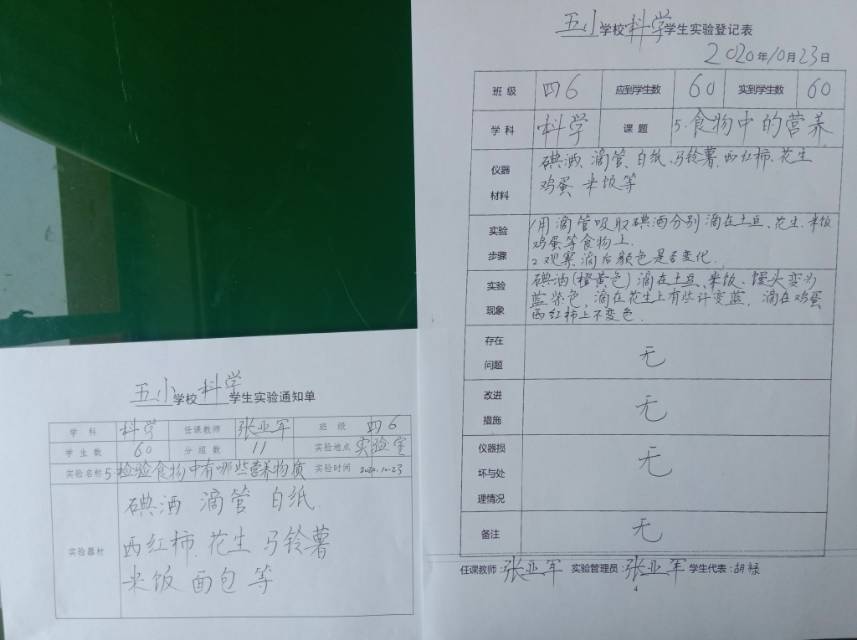 五小学校科学学生实验通知单
学科 科学 任课教师 张亚军 班级 四6
学生数 60 分组数 11 实验地点 实验室
实验名称 5检验食物中有哪些营养物质 实验时间 2020.10.23
实验器材
碘酒 滴管 白纸
西红柿、花生 马铃薯
米饭 面包 等
五小学校科学学生实验登记表
2020年10月23日
班级 四6 应到学生数 60 实到学生数 60
学科 科学 课题 5.食物中的营养
仪器材料
碘酒、滴管、白纸、马铃薯、西红柿、花生
鸡蛋 米饭等
实验步骤
1用滴管吸取碘酒分别滴在土豆、花生、米饭
鸡蛋等食物上.
2观察滴后颜色是否变化.
实验现象
碘酒(橙黄色)滴在土豆、米饭、馒头变为
蓝紫色,滴在花生上有些许变蓝,滴在鸡蛋
西红柿上不变色.
存在问题 无
改进措施 无
仪器损坏与处理情况 无
备注 无
任课教师:张亚军 实验管理员:张亚军 学生代表:胡
4